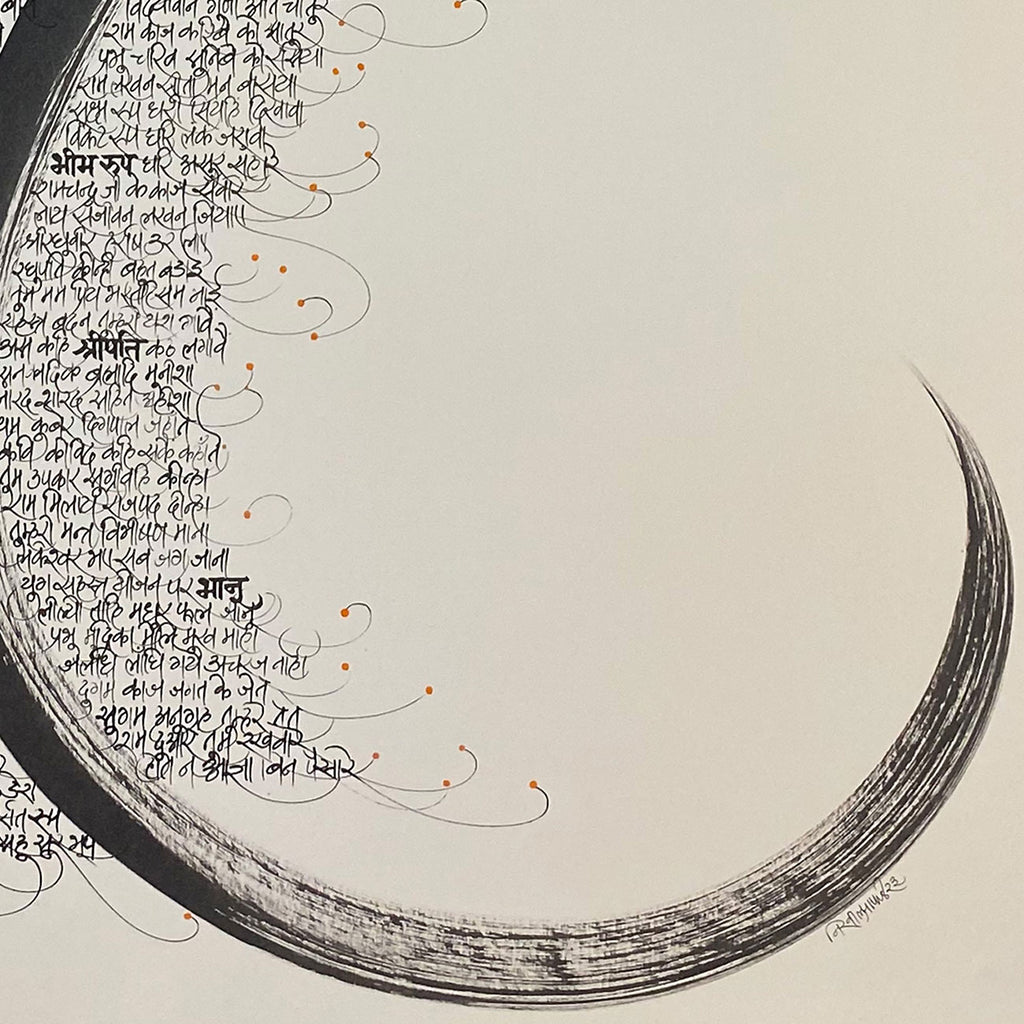 विद्यावान गुणी अति चातुर
राम काज करिबे को आतुर
प्रभु चरित्र सुनिबे को रसिया
राम लखन सीता मन बसिया
सूक्ष्म रूप धरी सियहि दिखावा
विकट रूप धरि लंक जरावा
भीम रुप धरि असुर सँहारे
रामचन्द्र जी के काज सँवारे
लाय संजीवन लखन जियाए
श्रीरघुवीर हरषि उर लाए
रघुपति कीन्ही बहुत बड़ाई
तुम मम प्रिय भरतहि सम भाई
सहस्त्र बदन तुम्हरो यश गावैं
अस कहि श्रीपति कंठ लगावै
सनकादिक ब्रह्मादि मुनीशा
नारद शारद सहित अहीशा
यम कुबेर दिगपाल जहाँ ते
कवि कोविद कहि सके कहाँ ते
तुम उपकार सुग्रीवहि कीन्हा
राम मिलाय राजपद दीन्हा
तुम्हरो मन्त्र विभीषण माना
लंकेश्वर भए सब जग जाना
युग सहस्त्र योजन पर भानु
लील्यो ताहि मधुर फल जानू
प्रभु मुद्रिका मेलि मुख माही
जलधि लांघि गये अचरज नाही
दुर्गम काज जगत के जेते
सुगम अनुग्रह तुम्हरे तेते
राम दुआरे तुम रखवारे
होत न आज्ञा बिन पैसारे
सुर भूप